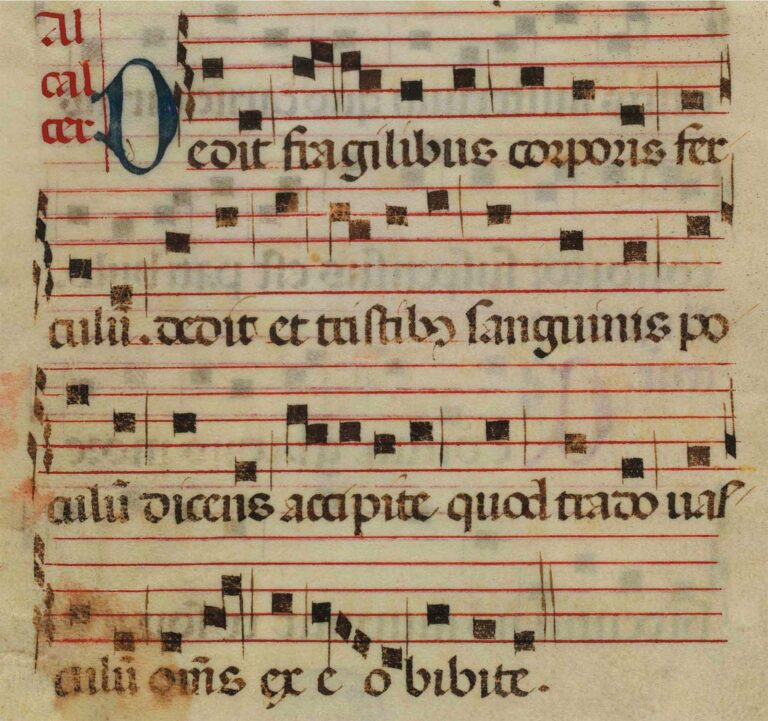 Al
cal
cer
Dedit fragilibus corporis fer
culū. dedit et tristibꝫ sanguinis po
culū dicens accipite quod trado uaſ
culū om̄s ex e o bibite.